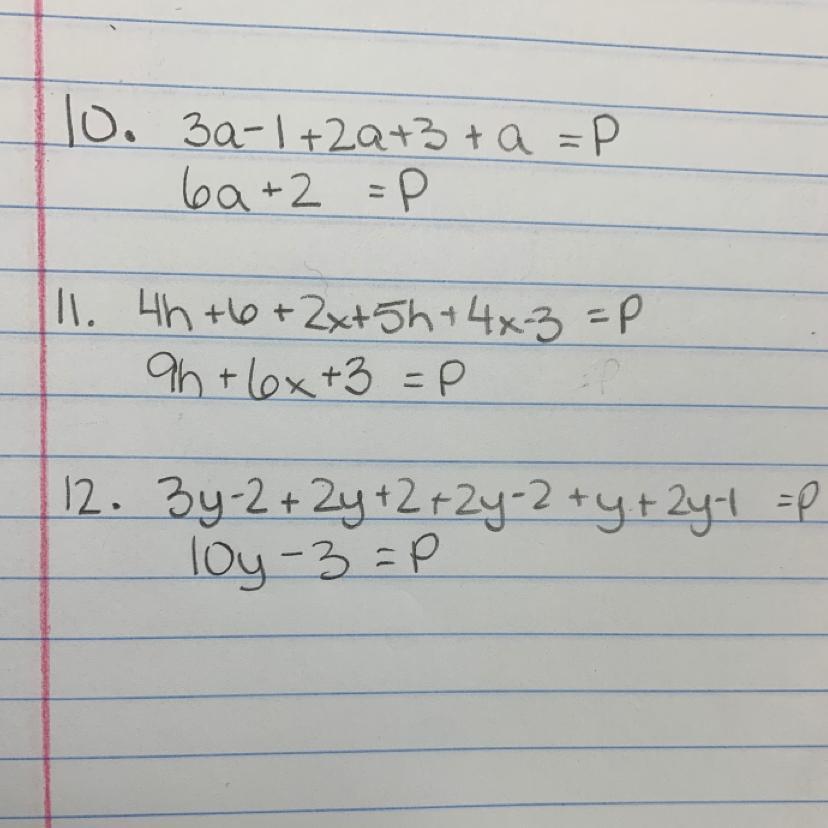 10. 3a-1+2a+3+a = P
6a+2 = P
11. 4h+6+2x+5h+4x-3 = P
9h+6x+3 = P
12. 3y-2+2y+2+2y-2+y+2y-1 = P
10y-3 = P